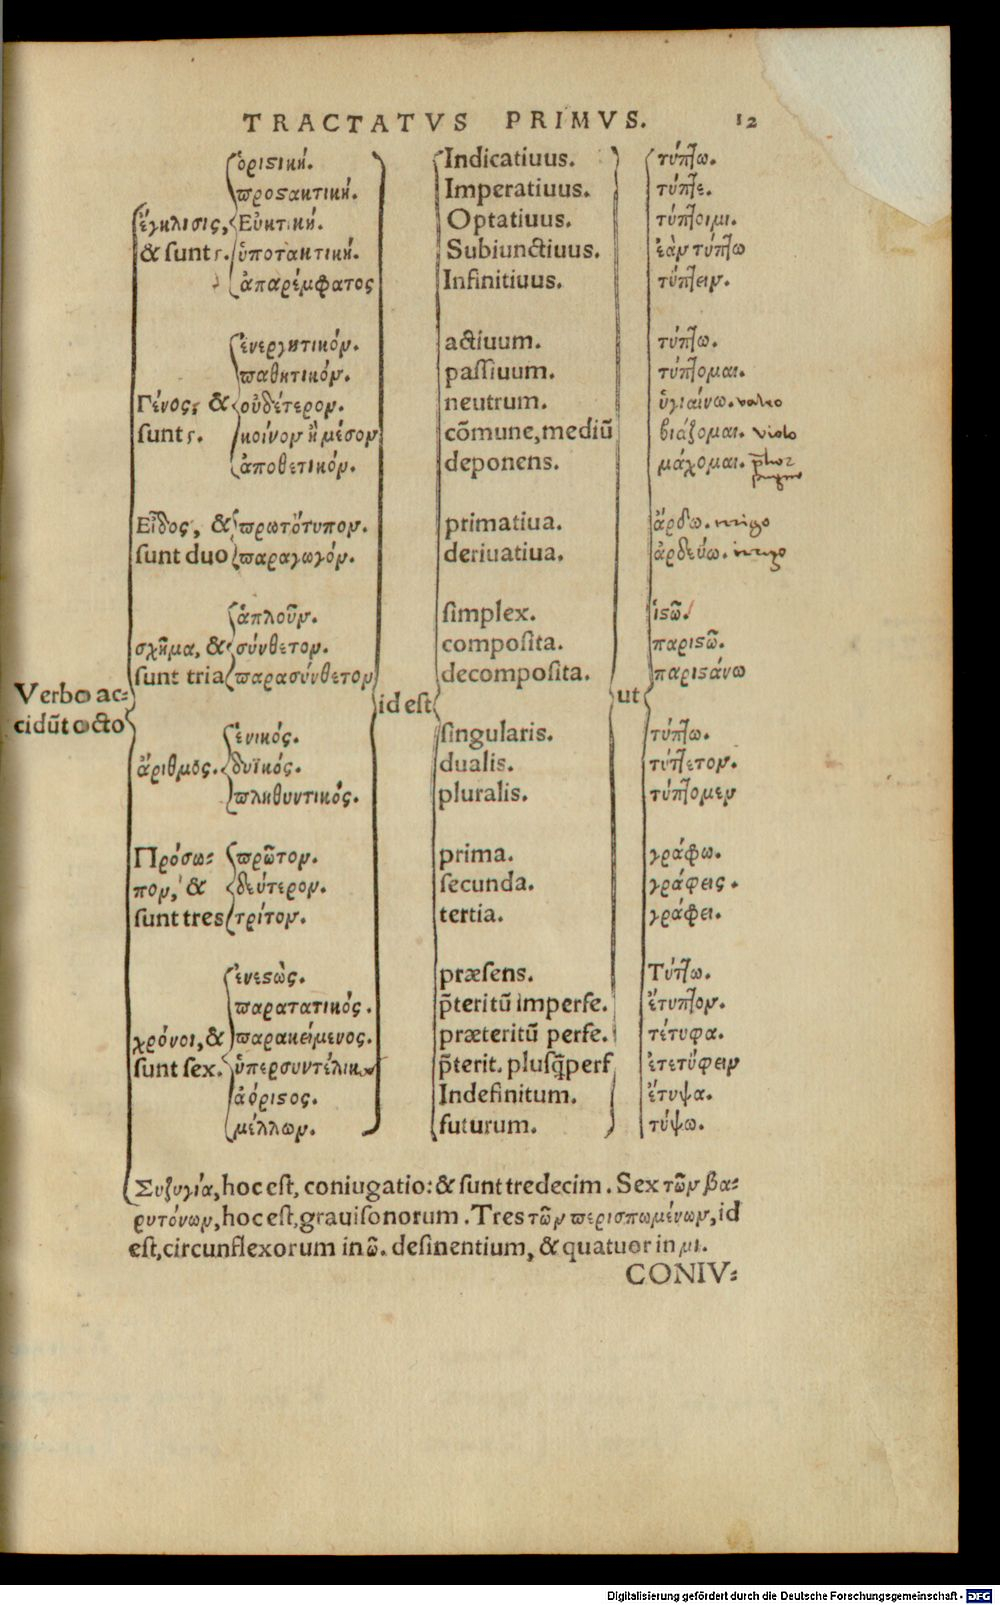 TRACTATVS PRIMVS. 12
ὁριϛική. Indicatiuus. τύπτω.
προσακτική. Imperatiuus. τύπτε.
ἔγκλισις, Εὐκτική. Optatiuus. τύπτοιμι.
& sunt 5. ὑποτακτική. Subiunctiuus. ἐὰν τύπτω
ἀπαρέμφατος Infinitiuus. τύπτειν.
ἐνεργητικόν. actiuum. τύπτω.
παθητικόν. passiuum. τύπτομαι.
Γένος, & οὐδέτερον. neutrum. ὑγιαίνω. valeo
sunt 5. κοίνον ἢ μέσον cõmune, mediũ βιάζομαι. violo
ἀποθετικόν. deponens. μάχομαι.
Εἶδος, & πρωτότυπον. primatiua. ἄρδω. irrigo
sunt duo παραγωγόν. deriuatiua. ἀρδεύω. irrigo
ἁπλοῦν. simplex. ἱϛῶ.
σχῆμα, & σύνθετον. composita. παριϛῶ.
sunt tria παρασύνθετον decomposita. παριϛάνω
Verbo ac= id est ut
cidũt octo
ἑνικός. singularis. τύπτω.
ἄριθμος. δυϊκός. dualis. τύπτετον.
πληθυντικός. pluralis. τύπτομεν
Πρόσω= πρῶτον. prima. γράφω.
πον, & δεύτερον. secunda. γράφεις.
sunt tres τρίτον. tertia. γράφει.
ἐνεϛὼς. præsens. Τύπτω.
παρατατικός. p̃teritũ imperfe. ἔτυπτον.
χρόνοι, & παρακείμενος. præteritũ perfe. τέτυφα.
sunt sex. ὑπερσυντέλικος p̃terit. plusq̃perf ἐτετύφειν
ἀόριϛος. Indefinitum. ἔτυψα.
μέλλων. futurum. τύψω.
Συζυγία, hoc est, coniugatio: & sunt tredecim. Sex τῶν βα=
ρυτόνων, hoc est, grauisonorum. Tres τῶν περισπωμένων, id
est, circunflexorum in ῶ. desinentium, & quatuor in μι.
CONIV=
Digitalisierung gefördert durch die Deutsche Forschungsgemeinschaft - DFG